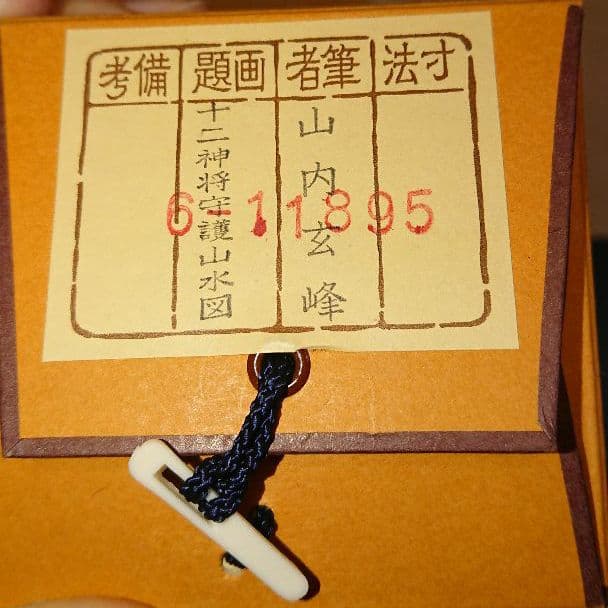 寸法
筆者
画題
備考
山内玄峰
十二神将守護山水図
6-11895